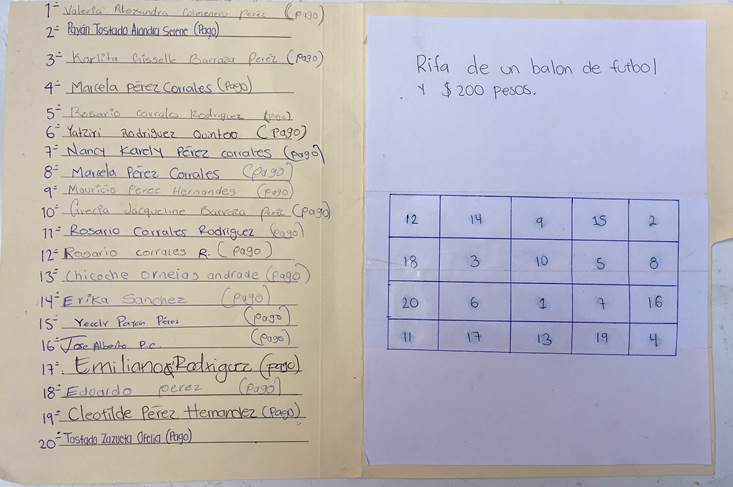 1= Valeria Alexandra Colmenero Perez (Pago)
2= Payán Tostado Alondra Serene (Pago)
3= Karlita Grisselle Barraza Perez (Pago)
4= Marcela perez Corrales (Pago)
5= Rosario corrales Rodriguez (pago)
6= Yatziri Rodriguez Quintero (Pago)
7= Nancy Karely Pérez corrales (pago)
8= Marcela Perez Corrales (pago)
9= Mauricio Perez Hernandes (Pago)
10= Grecia Jacqueline Barraza Perez (Pago)
11= Rosario Corrales Rodriguez (pago)
12= Rosario corrales R. (pago)
13= Chicoche orneias andrade (pago)
14= Erika Sanchez (Pago)
15= Payan Pérez (Pago)
16= Jose Alberto P.C. (Pago)
17= Emiliano Rodriguez (Pago)
18= Eduardo perez (Pago)
19= Cleotilde Pérez Hernandez (Pago)
20= Tostado Zazueta Ofelia (Pago)
Rifa de un balon de futbol
Y $200 pesos.
12 14 9 15 2
18 3 10 5 8
20 6 1 7 16
11 17 13 19 4